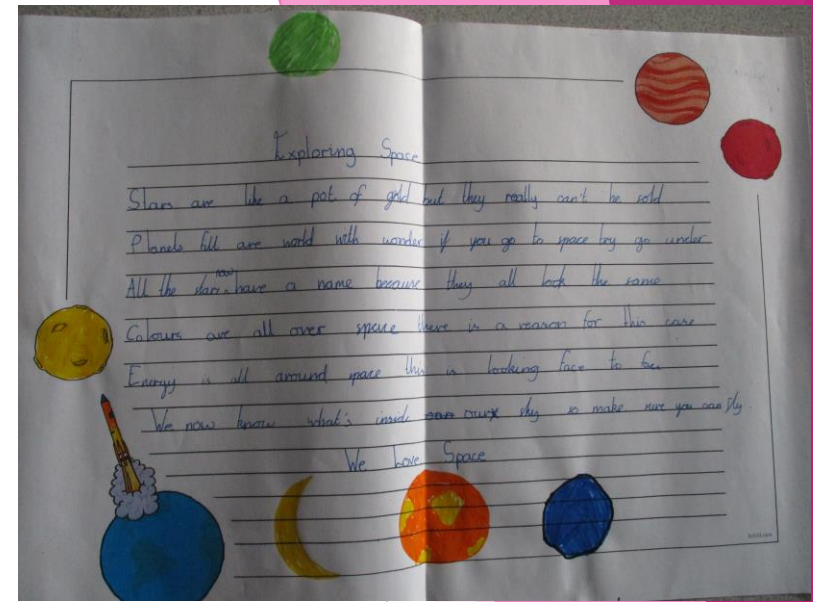 Exploring Space
Stars are like a pot of gold but they really can't be sold
Planets fill are world with wonder if you go to space try go under
All the stars now have a name because they all look the same
Colours are all over space there is a reason for this case
Energy is all around space this is looking face to face
We now know what's inside our sky so make sure you can fly
We Love Space